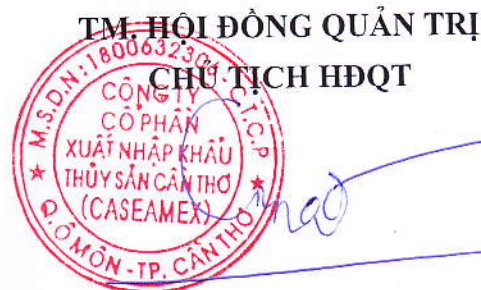 TM. HỘI ĐỒNG QUẢN TRỊ
CHỦ TỊCH HĐQT
M.S.D.N:1800632306-C.T.C.P
CÔNG TY
CỔ PHẦN
XUẤT NHẬP KHẨU
THỦY SẢN CẦN THƠ
(CASEAMEX)
Q.Ô MÔN-TP. CẦN THƠ